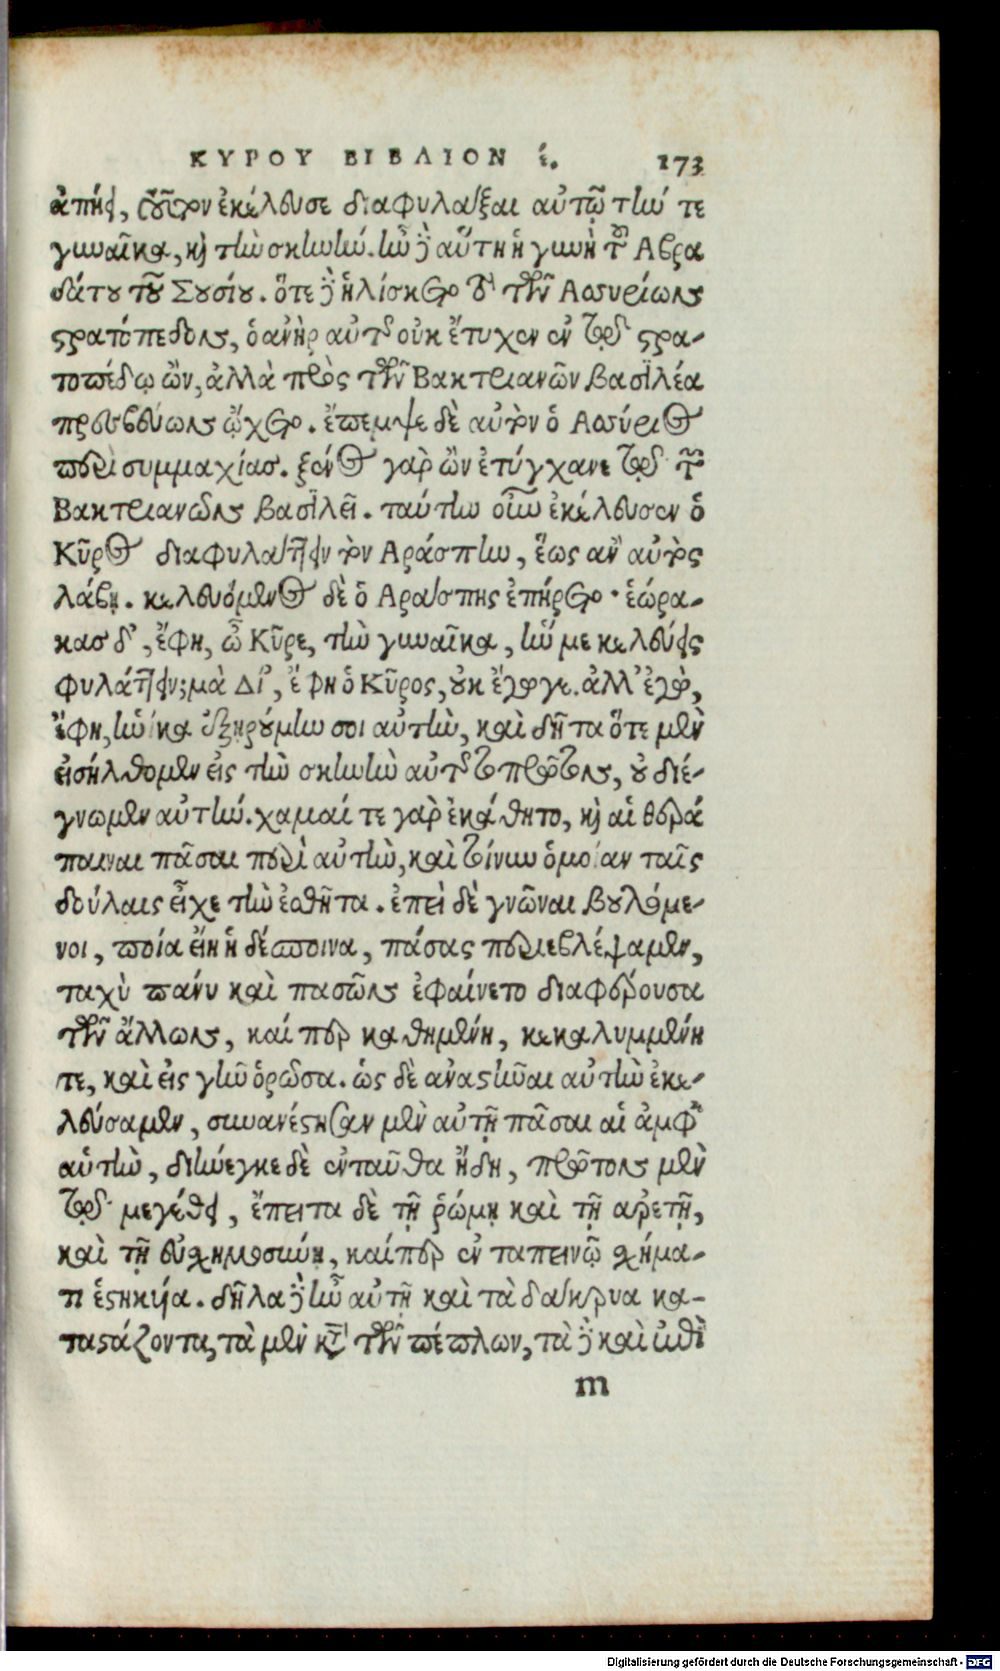 ΚΥΡΟΥ ΒΙΒΛΙΟΝ έ. 173
ἀπῄει, τοῦτον ἐκέλευσε διαφυλάξαι αὐτῷ τήν τε
γυναῖκα, κὶ τὴν σκηνήν. ἦν δὲ αὕτη ἡ γυνὴ τοῦ Αβρα
δάτου τοῦ Σουσίου. ὅτε δὲ ἡλίσκετο τὸ τῶν Ασσυρίων
στρατόπεδον, ὁ ἀνὴρ αὐτῆς οὐκ ἔτυχεν ἐν τῷ στρα-
τοπέδῳ ὢν, ἀλλὰ πρὸς τὸν Βακτριανῶν βασιλέα
πρεσβεύων ᾤχετο. ἔπεμψε δὲ αὐτὸν ὁ Ασσύριος
περὶ συμμαχίας. ξένος γὰρ ὢν ἐτύγχανε τῷ τῶν
Βακτριανῶν βασιλεῖ. ταύτην οὖν ἐκέλευσεν ὁ
Κῦρος διαφυλάττειν τὸν Αράσπην, ἕως ἂν αὐτὸς
λάβῃ. κελευόμενος δὲ ὁ Αράσπης ἐπήρετο· ἑώρα-
κας δ', ἔφη, ὦ Κῦρε, τὴν γυναῖκα, ἥν με κελεύεις
φυλάττειν; μὰ Δί', ἔφη ὁ Κῦρος, οὐκ ἔγωγε. ἀλλ' ἐγὼ,
ἔφη, ἡνίκα ἐξῃρούμην σοι αὐτὴν, καὶ δῆτα ὅτε μὲν
εἰσήλθομεν εἰς τὴν σκηνὴν αὐτῆς τὸ πρῶτον, οὐ διέ-
γνωμεν αὐτήν. χαμαί τε γὰρ ἐκάθητο, κὶ αἱ θερά
παιναι πᾶσαι περὶ αὐτὴν, καὶ τοίνυν ὁμοίαν ταῖς
δούλαις εἶχε τὴν ἐσθῆτα. ἐπεὶ δὲ γνῶναι βουλόμε-
νοι, ποία εἴη ἡ δέσποινα, πάσας περιεβλέψαμεν,
ταχὺ πάνυ καὶ πασῶν ἐφαίνετο διαφέρουσα
τῶν ἄλλων, καίπερ καθημένη, κεκαλυμμένη
τε, καὶ εἰς γῆν ὁρῶσα. ὡς δὲ ἀναστῆναι αὐτὴν ἐκε-
λεύσαμεν, συνανέστησαν μὲν αὐτῇ πᾶσαι αἱ ἀμφὶ
αὐτὴν, διήνεγκε δὲ ἐνταῦθα ἤδη, πρῶτον μὲν
τῷ μεγέθει, ἔπειτα δὲ τῇ ῥώμῃ καὶ τῇ ἀρετῇ,
καὶ τῇ εὐσχημοσύνῃ, καίπερ ἐν ταπεινῷ σχήμα-
τι ἑστηκυῖα. δῆλα δὲ ἦν αὐτῇ καὶ τὰ δάκρυα κα-
ταστάζοντα, τὰ μὲν κατὰ τῶν πέπλων, τὰ δὲ καὶ ἐπὶ
m
Digitalisierung gefördert durch die Deutsche Forschungsgemeinschaft - DFG